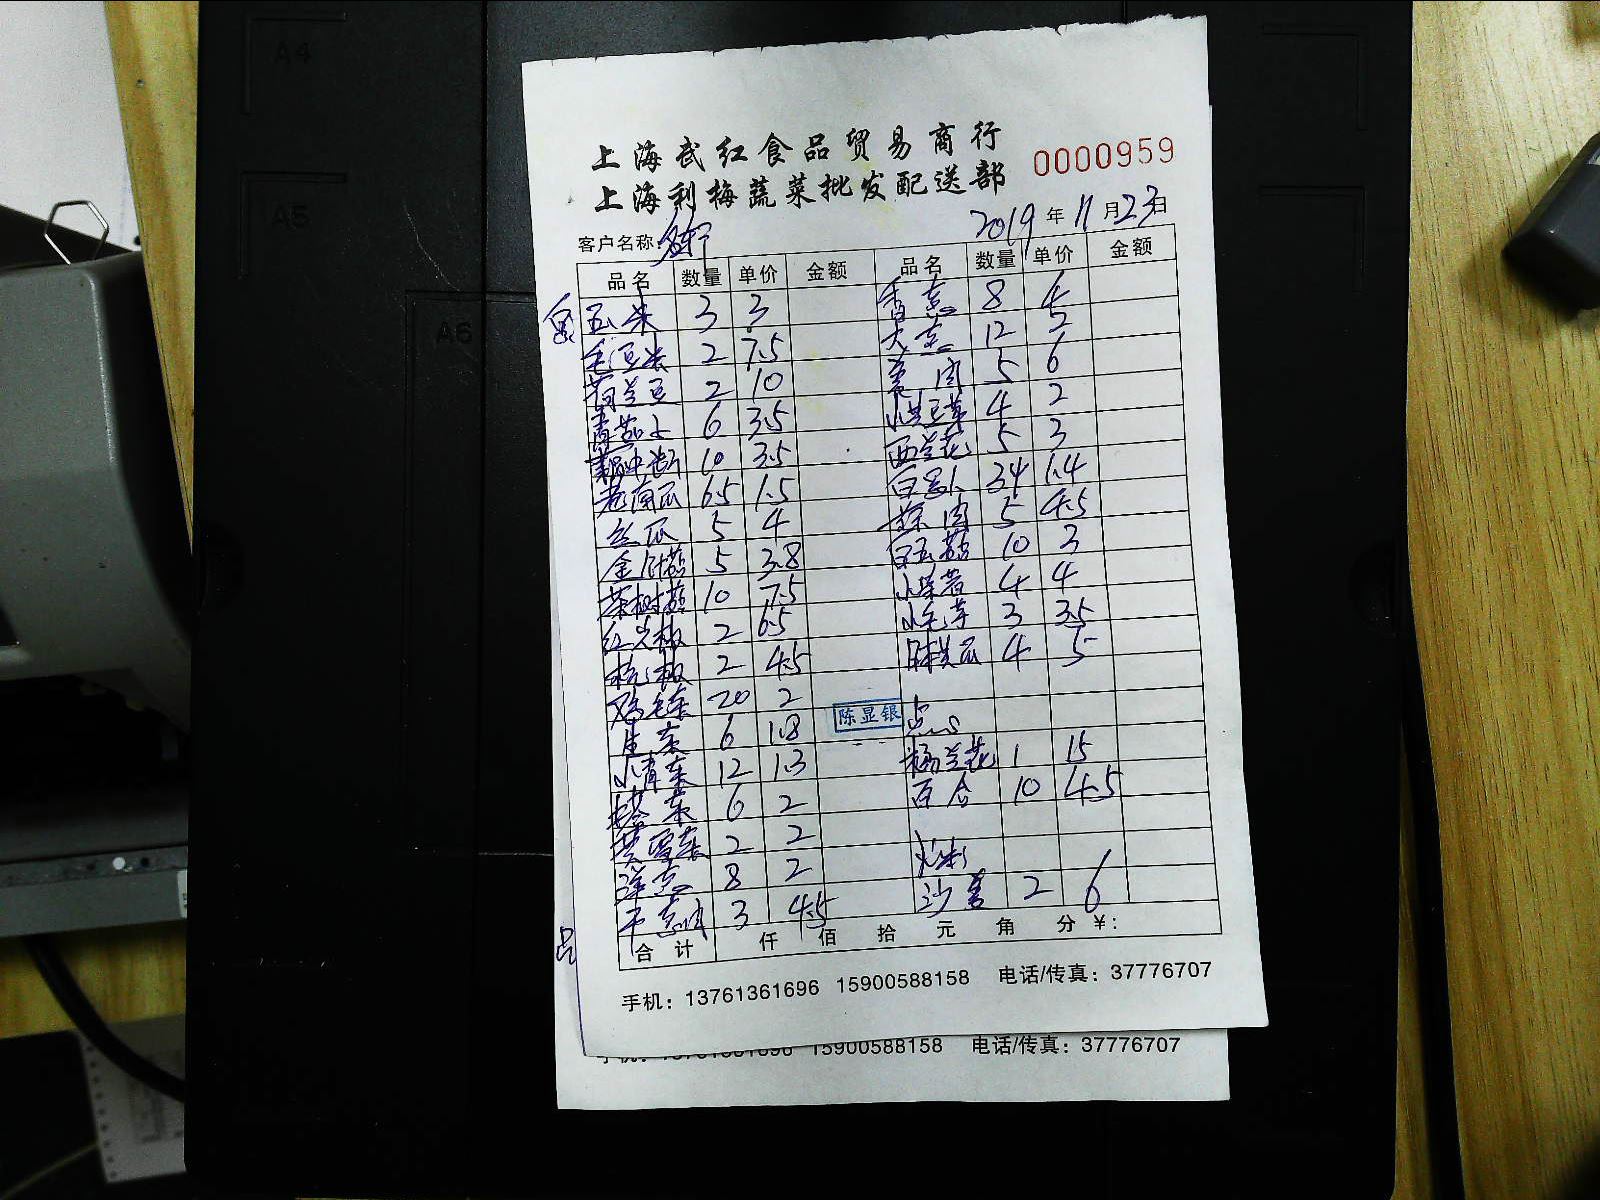 A4
A5
A6
上海武红食品贸易商行
上海利梅蔬菜批发配送部
0000959
客户名称:
2019年11月23日
品名 数量 单价 金额 品名 数量 单价 金额
玉米 3 3 香菜 8 4
毛豆米 2 7.5 大葱 12 2
荷兰豆 2 10 姜肉 5 6
青茄子 6 3.5 小黄豆芽 4 2
藕中断 10 3.5 西兰花 5 3
老南瓜 6.5 1.5 白萝卜 34 1.4
丝瓜 5 4 蒜肉 5 4.5
金针菇 5 3.8 白玉菇 10 3
茶树菇 10 7.5 小紫薯 4 4
红尖椒 2 6.5 小毛芋 3 3.5
杭椒 2 4.5 日本黄瓜 4 5
鸡毛菜 20 2
陈显银
生菜 6 1.8 点心
小青菜 12 1.3 杨兰花 1 15
塔菜 6 2 百合 10 4.5
黄芽菜 2 2
洋葱 8 2
3 4.5 沙姜 2 6
合计 仟 佰 拾 元 角 分 ¥:
手机: 13761361696 15900588158 电话/传真: 37776707
15900588158 电话/传真: 37776707